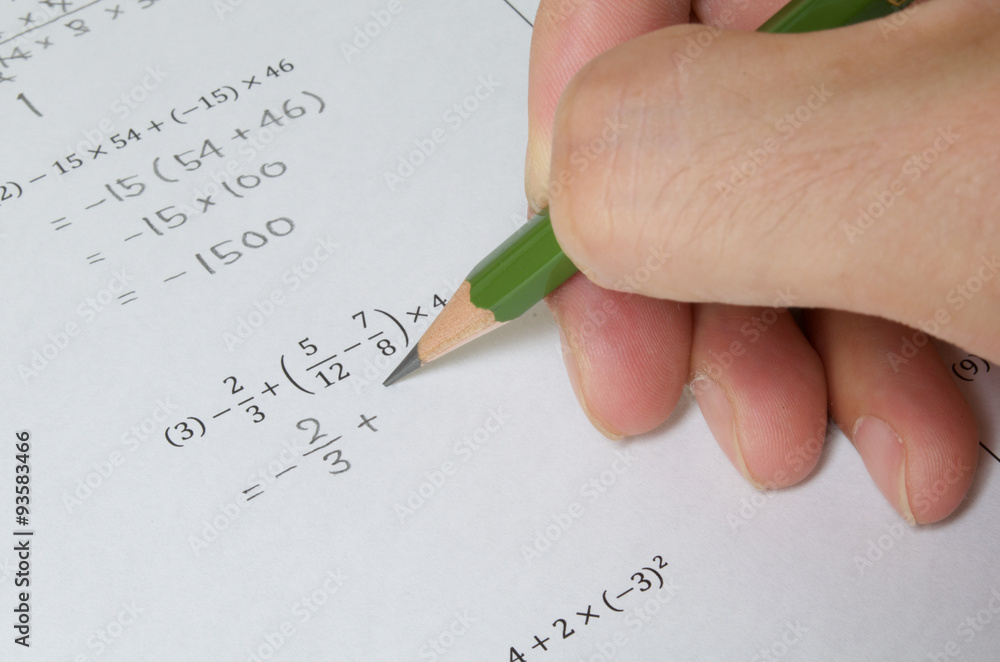 1
2) − 15 × 54 + (−15) × 46
= −15 (54 + 46)
= −15 × 100
= −1500
(3) − 2/3 + (5/12 − 7/8) × 4
= − 2/3 +
(9)
4 + 2 × (−3)²
Adobe Stock | #93583466